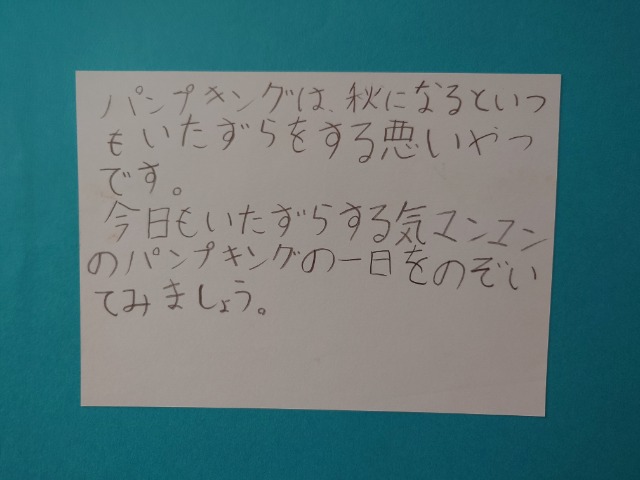 パンプキングは、秋になるといつ
もいたずらをする悪いやつ
です。
今日もいたずらする気マンマン
のパンプキングの一日をのぞい
てみましょう。